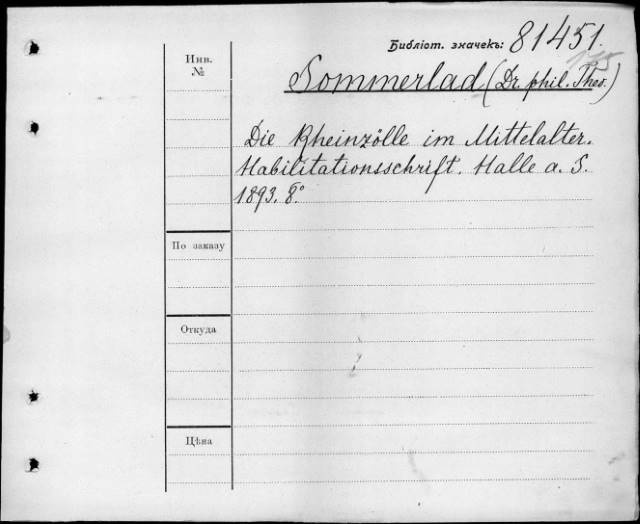 Библіот. значекъ: 81451.
Инв.
№
Sommerlad, (Dr. phil. Theo.)
Die Rheinzölle im Mittelalter.
Habilitationsschrift. Halle a. S.
1893. 8°
По заказу
Откуда
Цѣна